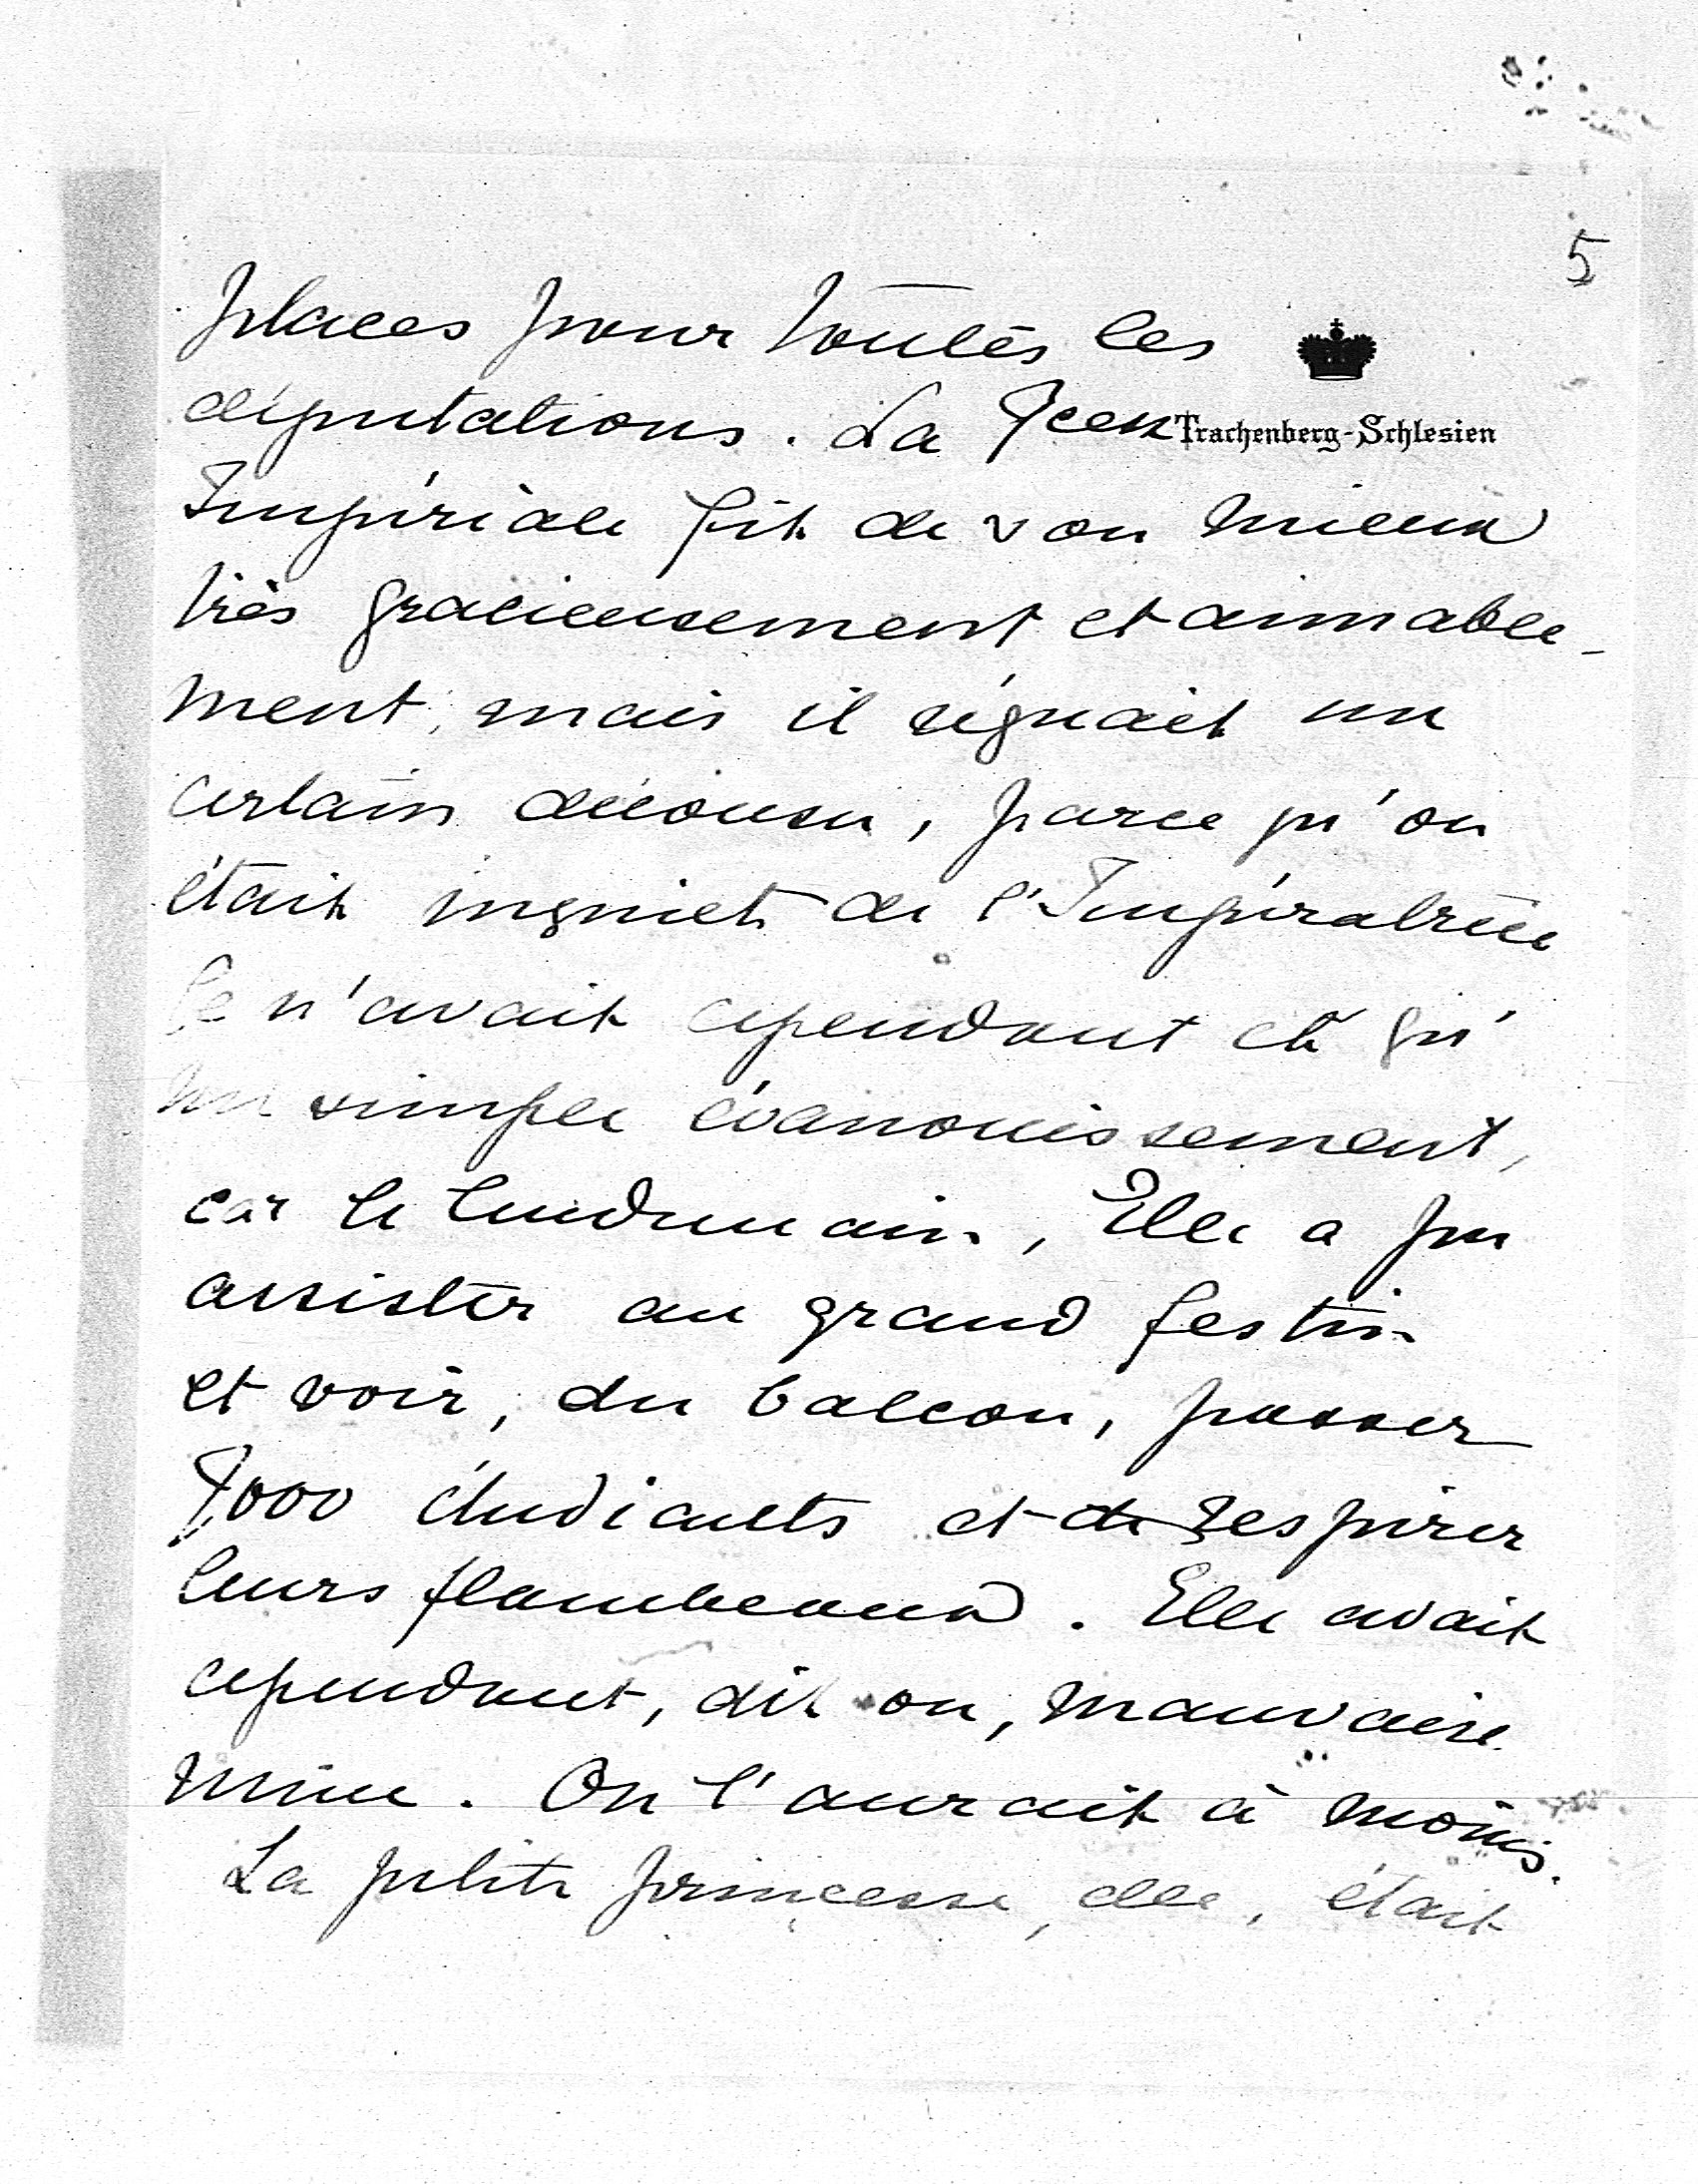 5
places pour toutes les
Trachenberg-Schlesien
députations. La
Impériale fit de son mieux
très gracieusement et aimable-
ment, mais il régnait un
certain décousu, parce qu'on
était inquiet de l'Impératrice
Ce n'avait cependant été qu'
un simple évanouissement,
car le lendemain, Elle a pu
assister au grand festin
et voir, du balcon, passer
étudiants et de respirer
leurs flambeaux. Elle avait
cependant, dit on, mauvaise
mine. On l'aurait à moins.
La petite princesse, elle, était